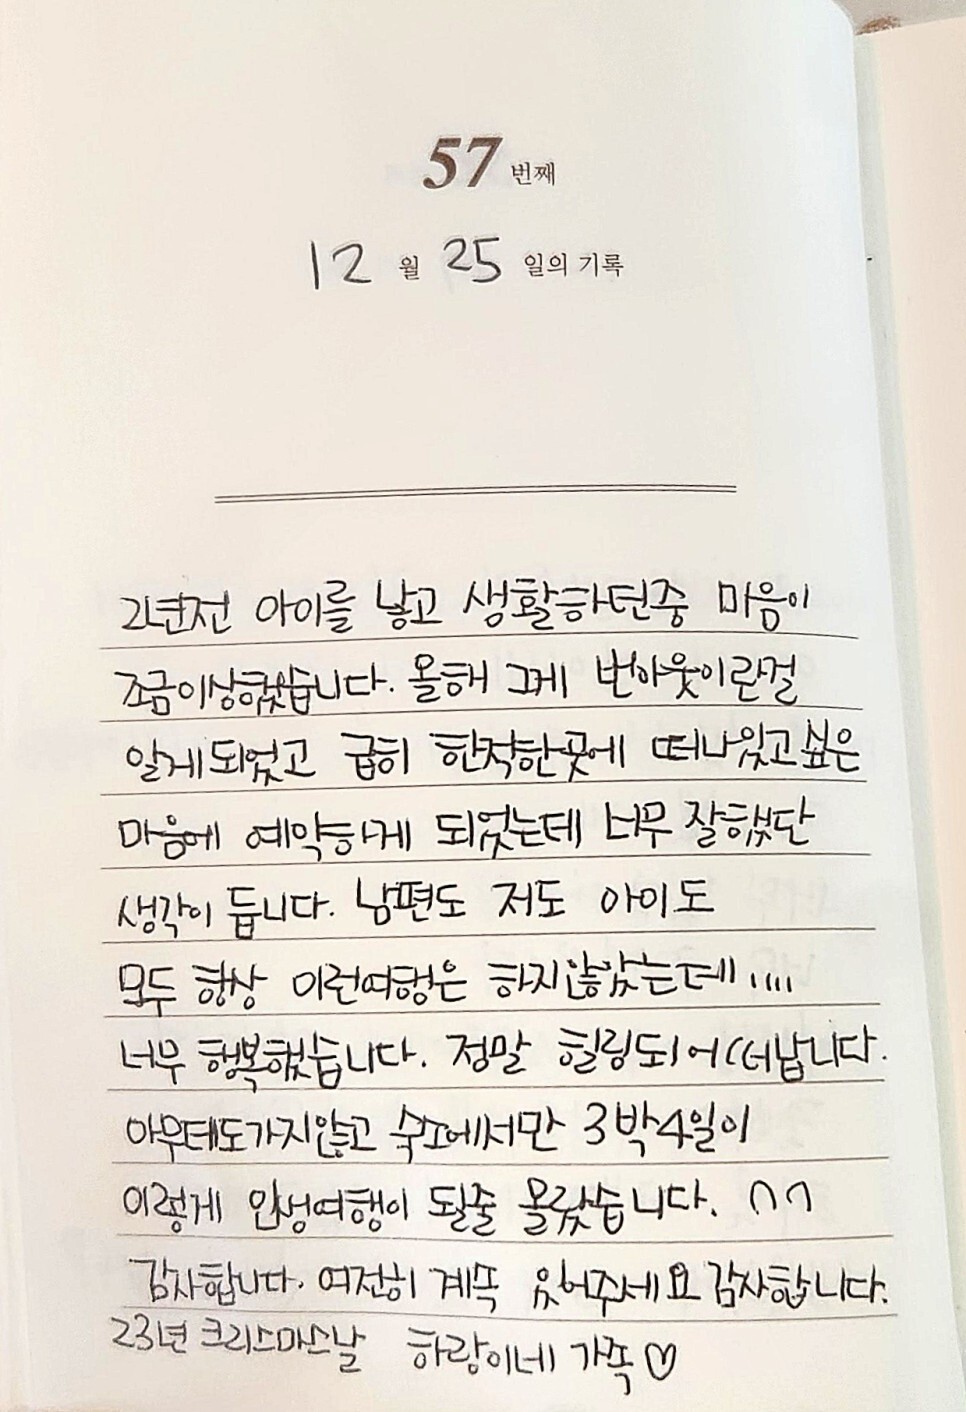 57 번째
12 월 25 일의 기록
2년전 아이를 낳고 생활하던중 마음이
조금이상했습니다. 올해 그게 번아웃이란걸
알게되었고 급히 한적한곳에 떠나있고싶은
마음에 예약하게 되었는데 너무 잘했단
생각이 듭니다. 남편도 저도 아이도
모두 항상 이런여행은 하지않았는데....
너무 행복했습니다. 정말 힐링되어 떠납니다.
아무데도가지않고 숙소에서만 3박4일이
이렇게 인생여행이 될줄 몰랐습니다. ∩∩
감사합니다. 여전히 계속 있어주세요 감사합니다.
23년 크리스마스날 하랑이네 가족♡